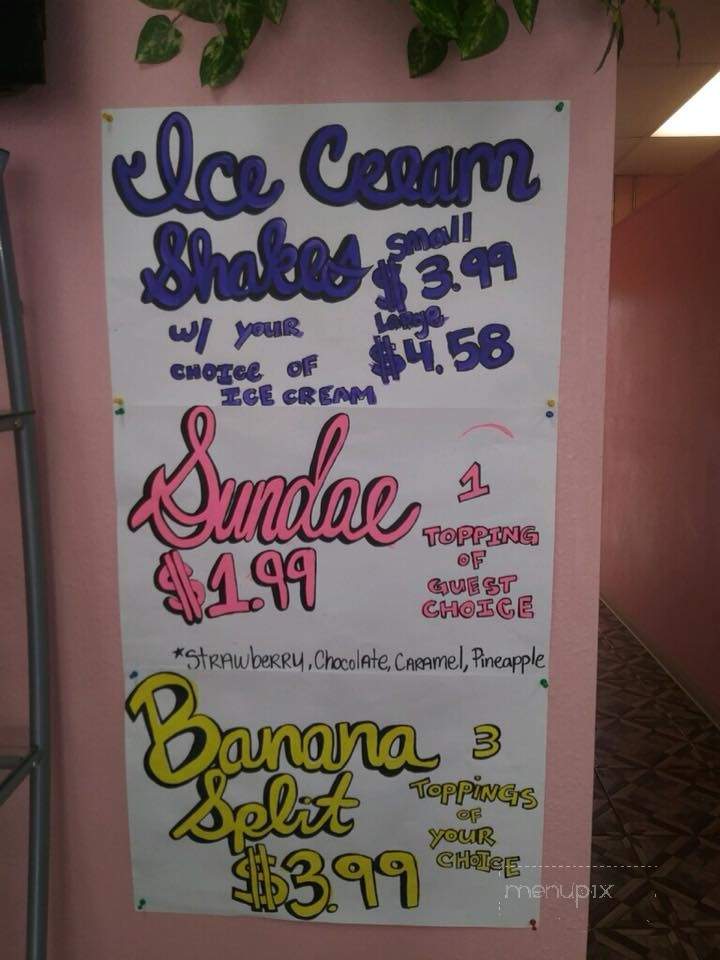 Ice Cream
Shakes small
$3.99
w/ your Large
CHOICE OF $4.58
ICE CREAM
Sundae 1
$1.99 TOPPING
OF
GUEST
CHOICE
*Strawberry, Chocolate, Caramel, Pineapple
Banana 3
Split TOPPINGS
OF
YOUR
CHOICE
$3.99
menupix